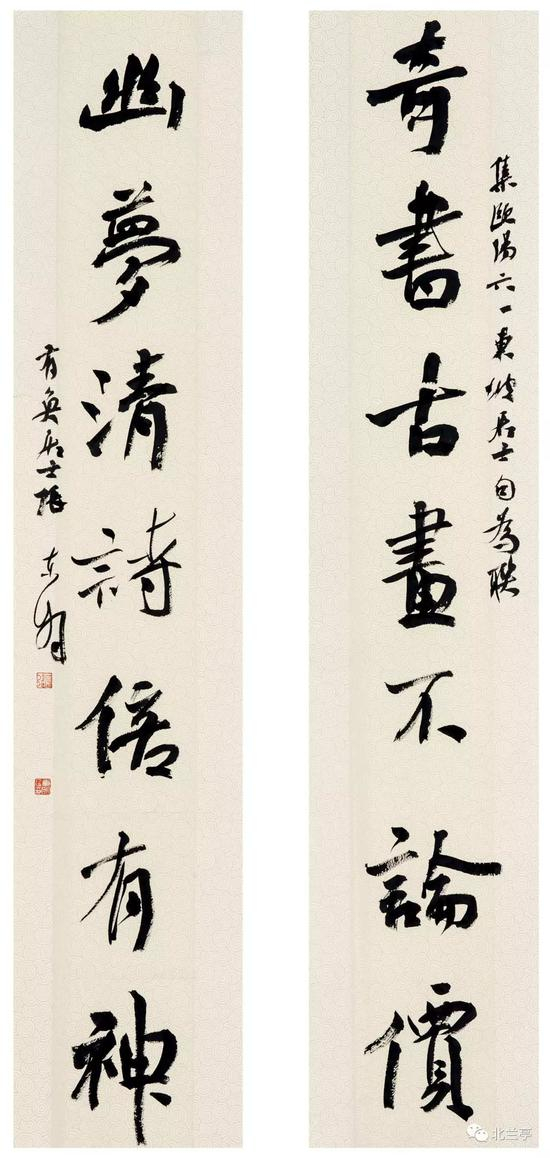 奇書古畫不論價
集歐陽六一東坡居士句為聯
幽夢清詩信有神
有奐居士張
北兰亭